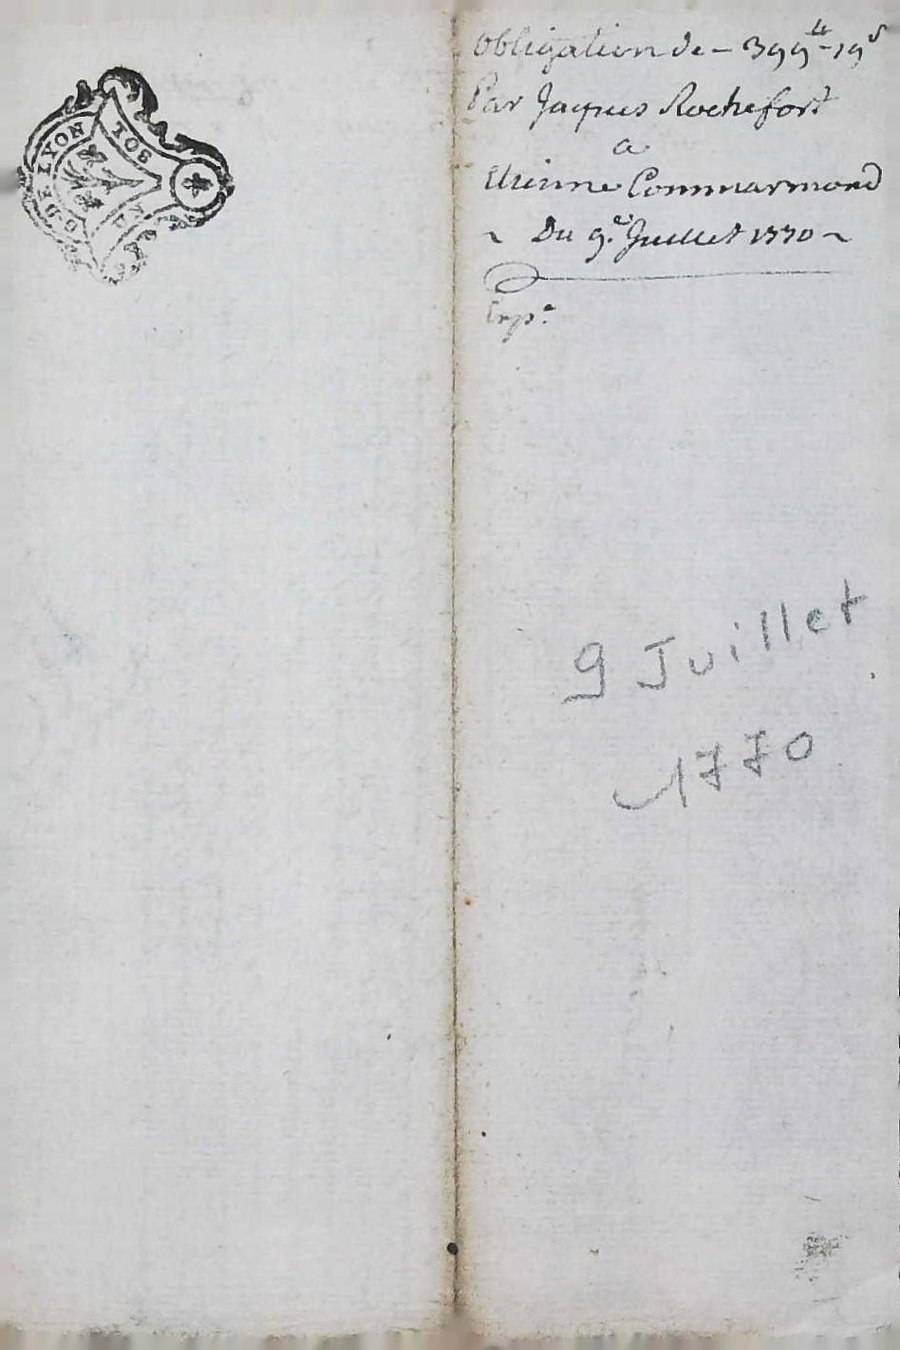 G. DE LYON
SOL
Obligation de – 399 ₶ – 19 s
Par Jaques Rochefort
a
Etienne Commarmond
~ Du 9.e Juillet 1770 ~
Exp.e
9 Juillet
1770